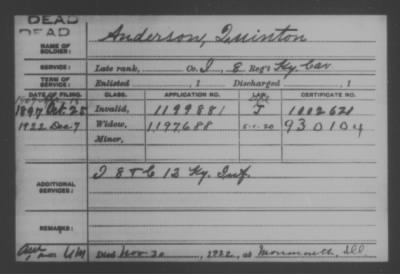 DEAD
DEAD
NAME OF SOLDIER: Anderson, Quinton
SERVICE: Late rank, Co. I, 8 Reg't Ky. Cav
TERM OF SERVICE: Enlisted , 1 Discharged , 1
DATE OF FILING. CLASS. APPLICATION NO. LAW. CERTIFICATE NO.
1897 Oct. 25 Invalid, 1199881 1002621
1922 Dec 7 Widow, 1197688 5-1-20 930104
Minor,
ADDITIONAL SERVICES: I & C 12 Ky. Inf.
REMARKS:
Died Nov. 20, 1922, at Monmouth, Ill